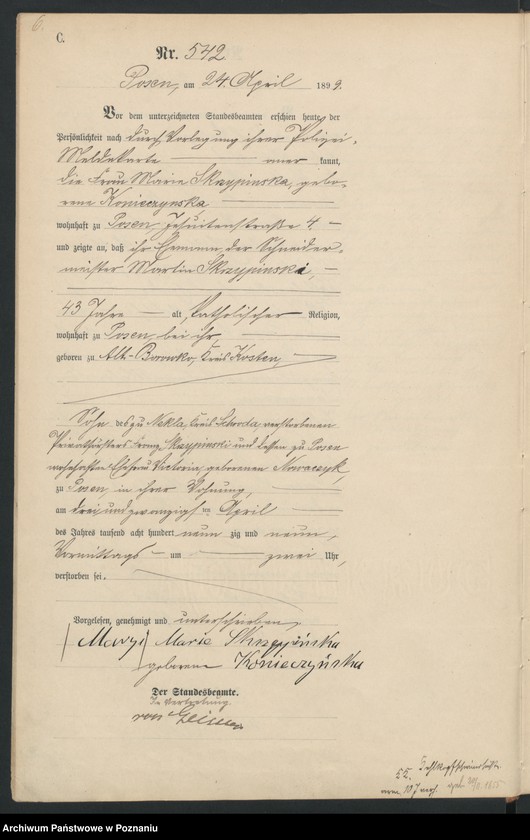 6.
C.
Nr. 542
Posen, am 24. April 1899.
Vor dem unterzeichneten Standesbeamten erschien heute, der
Persönlichkeit nach durch Vorlegung ihrer Polizei-
Meldekarte aner kannt,
die Frau Marie Skrzypinska, gebo-
rene Konieczynska
wohnhaft zu Posen, Jesuitenstraße 4
und zeigte an, daß ihr Ehemann, der Schneider-
meister Martin Skrzypinski,
43 Jahre alt, katholischer Religion,
wohnhaft zu Posen, bei ihr,
geboren zu Alt-Borowko, Kreis Kosten,
Sohn des zu Nekla, Kreis Schroda, verstorbenen
Privatförsters Franz Skrzypinski und dessen zu Posen
wohnhaften Ehefrau Victoria, geborenen Nowaczyk,
zu Posen, in ihrer Wohnung,
am drei und zwanzigsten April
des Jahres tausend acht hundert neun zig und neun,
Vormittags um zwei Uhr,
verstorben sei.
Vorgelesen, genehmigt und unterschrieben
Marie Skrzypińska
geborene Konieczyńska
Der Standesbeamte.
In Vertretung.
von
Archiwum Państwowe w Poznaniu